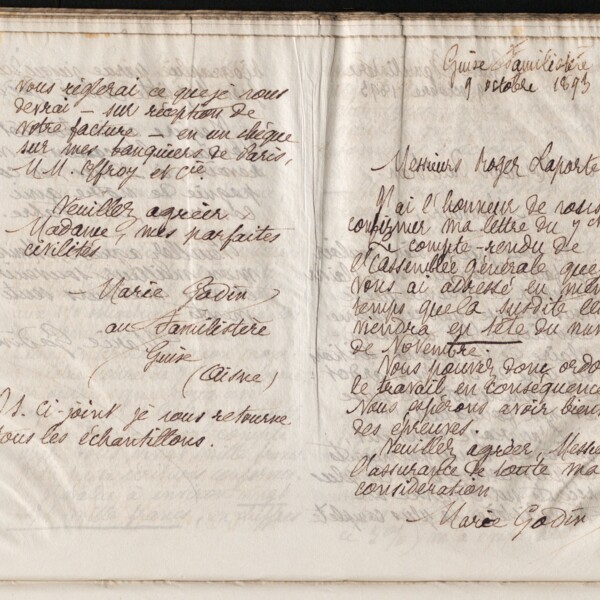 vous réglerai ce que je vous
devrai – sur réception de
votre facture – en un chèque
sur mes banquiers de Paris,
M.M. Offroy et Cie.
Veuillez agréer
Madame, mes parfaites
civilités
Marie Godin
au Familistère
Guise
(Aisne)
P.S. Ci-joint je vous retourne
tous les échantillons.
Guise Familistère
9 octobre 1893
Messieurs Roger Laporte
J'ai l'honneur de vous
confirmer ma lettre du 7 ct
Le compte-rendu de
l'Assemblée générale que
vous ai adressé en mêm
temps que la susdite
viendra en tête du num
de Novembre.
Vous pouvez donc ordo
le travail en conséquence
Nous espérons avoir bien
des épreuves.
Veuillez agréer, Messie
l'assurance de toute ma
considération
Marie Godin